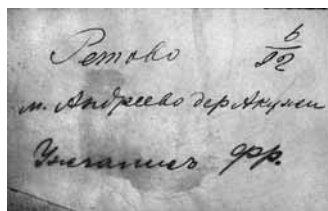 Ретово 6/92
м. Андреево дер Акулеи
фр.